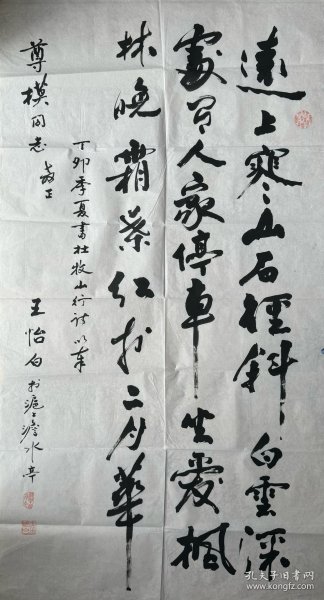 遠上寒山石徑斜白雲深
處有人家停車坐愛楓
林晚霜葉红於二月華
丁卯季夏書杜牧山行詩以奉
尊模同志 教正
王怡白於滬上澹水亭
孔夫子旧书网